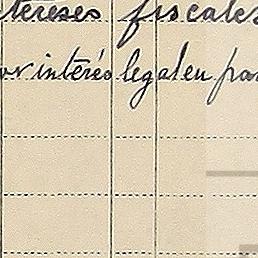 tereses fiscales
or interés legal en pa